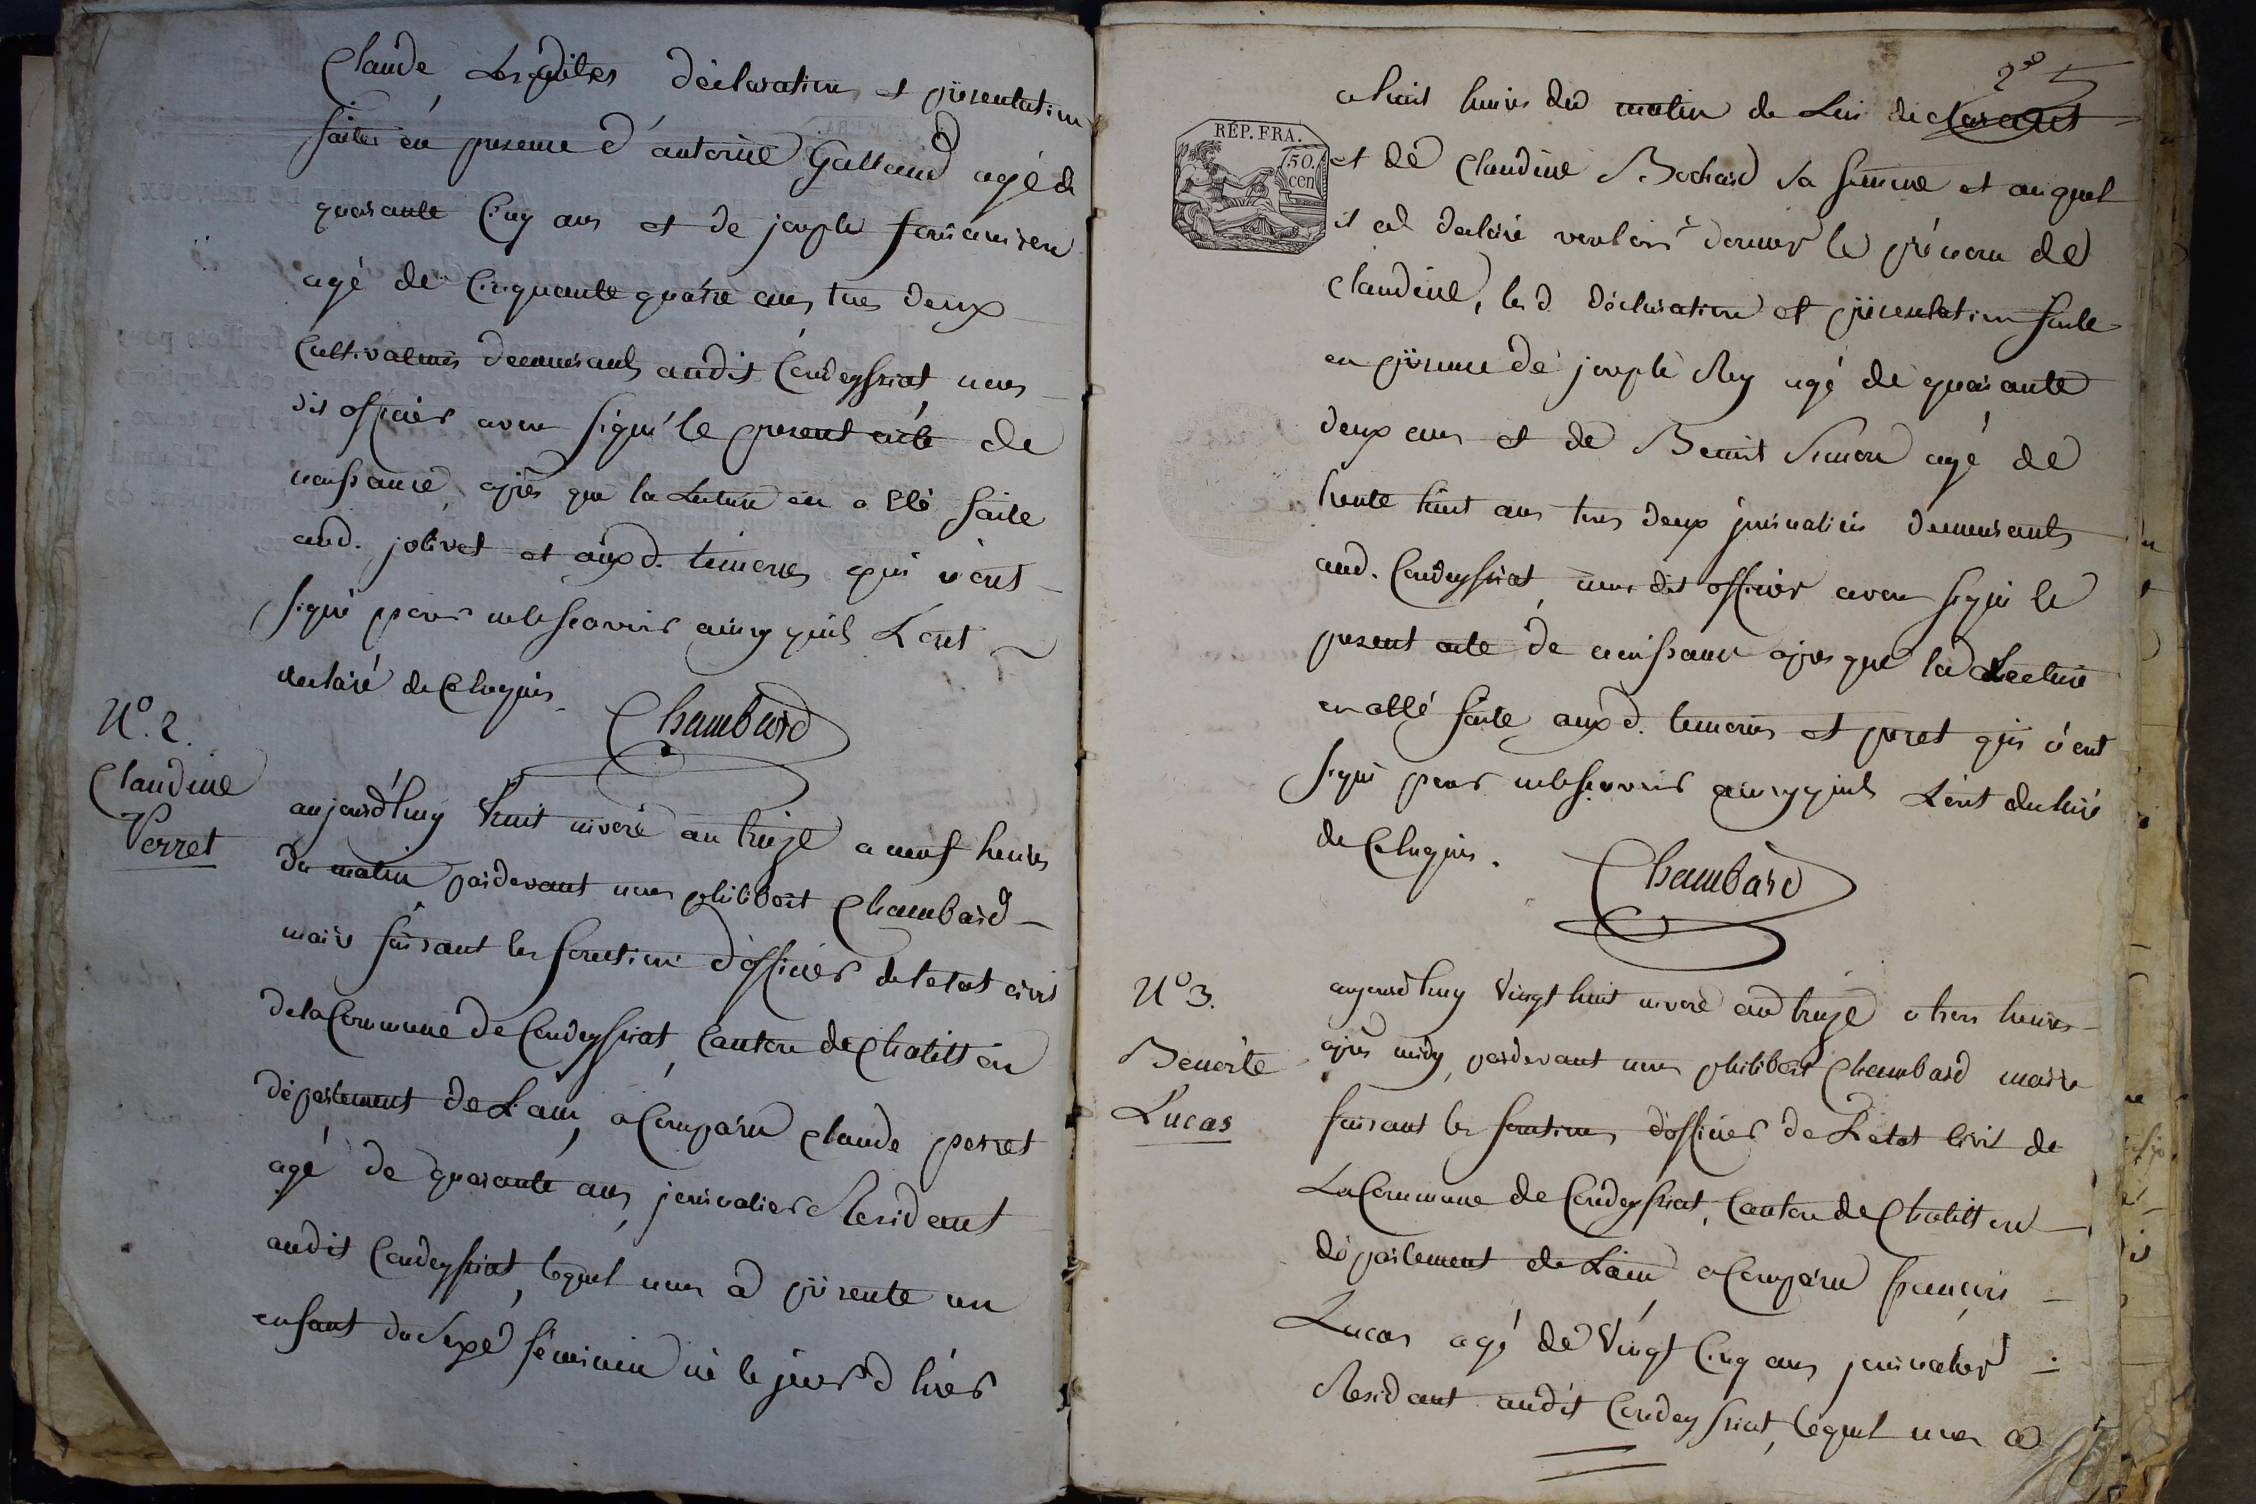 Claude, Lesquites déclaration et présentation
faites en presence d'antoine Galland agé de
quarante Cinq ans et de joseph
agé de Cinquante quatre ans, tous deux
Cultivateurs demeurants audit Condeyssiat, nous
dit officier avons signé le present acte de
naissance, après que la Lecture en a été faite
aud. jolivet et auxd. temoins, qui n'ont
signé pour ne le scavoir ainsy quils L'ont
declaré de Ce requis.
Chambard
N°. 2.
Claudine
Perret
aujourd'huy huit nivose an treize a neuf heures
du matin pardevant nous philibert Chambard
maire faisant les fonctions d'officier de l'etat civil
de la Commune de Condeyssiat, Canton de Chatillon
département de L'ain, a Comparu Claude perret
agé de quarante ans, journalier Residant
audit Condeyssiat, lequel nous a présenté un
enfant du Sexe féminin né le jour d'hier
2e
a huit heures du matin de Lui déclarant
RÉP. FRA.
50. cen
et de Claudine Bochard sa femme et auquel
il a déclaré vouloir donner le prénom de
Claudine, lesd déclaration et présentation faite
en présence de joseph Rey agé de quarante
deux ans et de Benoit Simon agé de
trente huit ans tous deux journaliers demeurants
aud. Condeyssiat, nous dit officier avons signé le
present acte de naissance après que la Lecture
en a été faite auxd. temoins et peret qui n'ont
signé pour ne le scavoir ainsy quils L'ont declaré
de Ce requis.
Chambard
N° 3.
Benoite
Lucas
aujourdhuy Vingt huit nivose an treize a trois heures
après midy, pardevant nous philibert Chambard maire
faisant les fonctions d'officier de L'etat Civil de
La Commune de Condeyssiat, Canton de Chatillon
département de L'ain a Comparu françois
Lucas agé de Vingt Cinq ans journalier
Residant audit Condeyssiat, lequel nous a